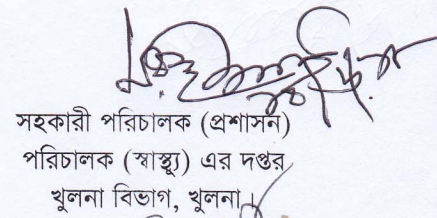 সহকারী পরিচালক (প্রশাসন)
পরিচালক (স্বাস্থ্য) এর দপ্তর
খুলনা বিভাগ, খুলনা।